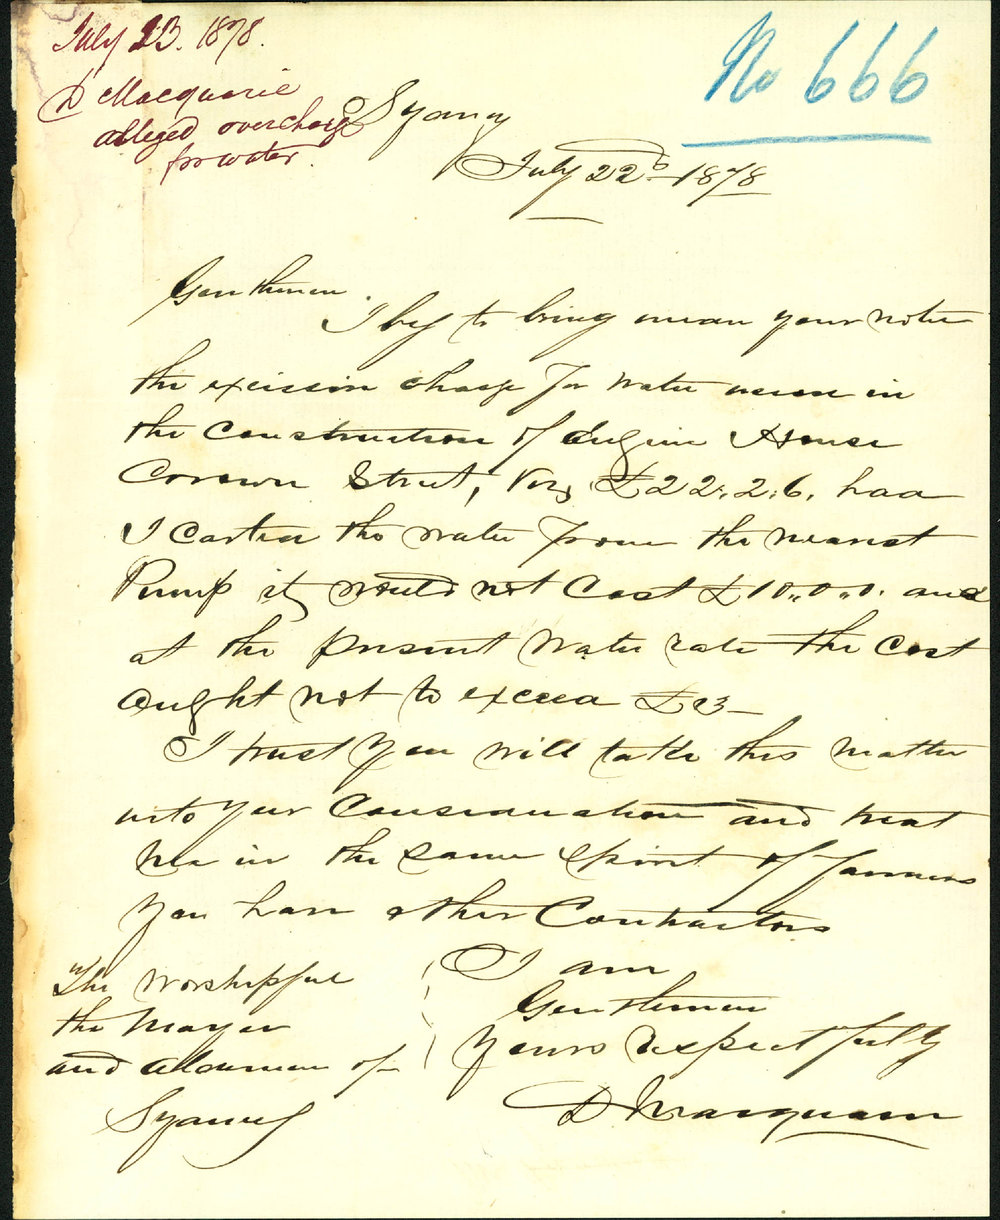 July 23. 1878.
D Macquarie
alleged overcharge
for water.
No 666
Sydney
July 22d 1878
Gentlemen.
I beg to bring under your notice
the excissive charge for water used in
the Construction of Engine House
Crown Street, Viz, £22.2.6. had
I carted the water from the nearest
Pump it would not Cost £10.,0.,0. and
at the present water rate the Cost
ought not to exceed £3—
I trust you will take this matter
into your Consideration and treat
me in the same spirit of fairness
you have other Contractors
I am
Gentlemen
Yours respectfully
D Macquarie
The Worshipful
the Mayor
and Aldermen of
Sydney